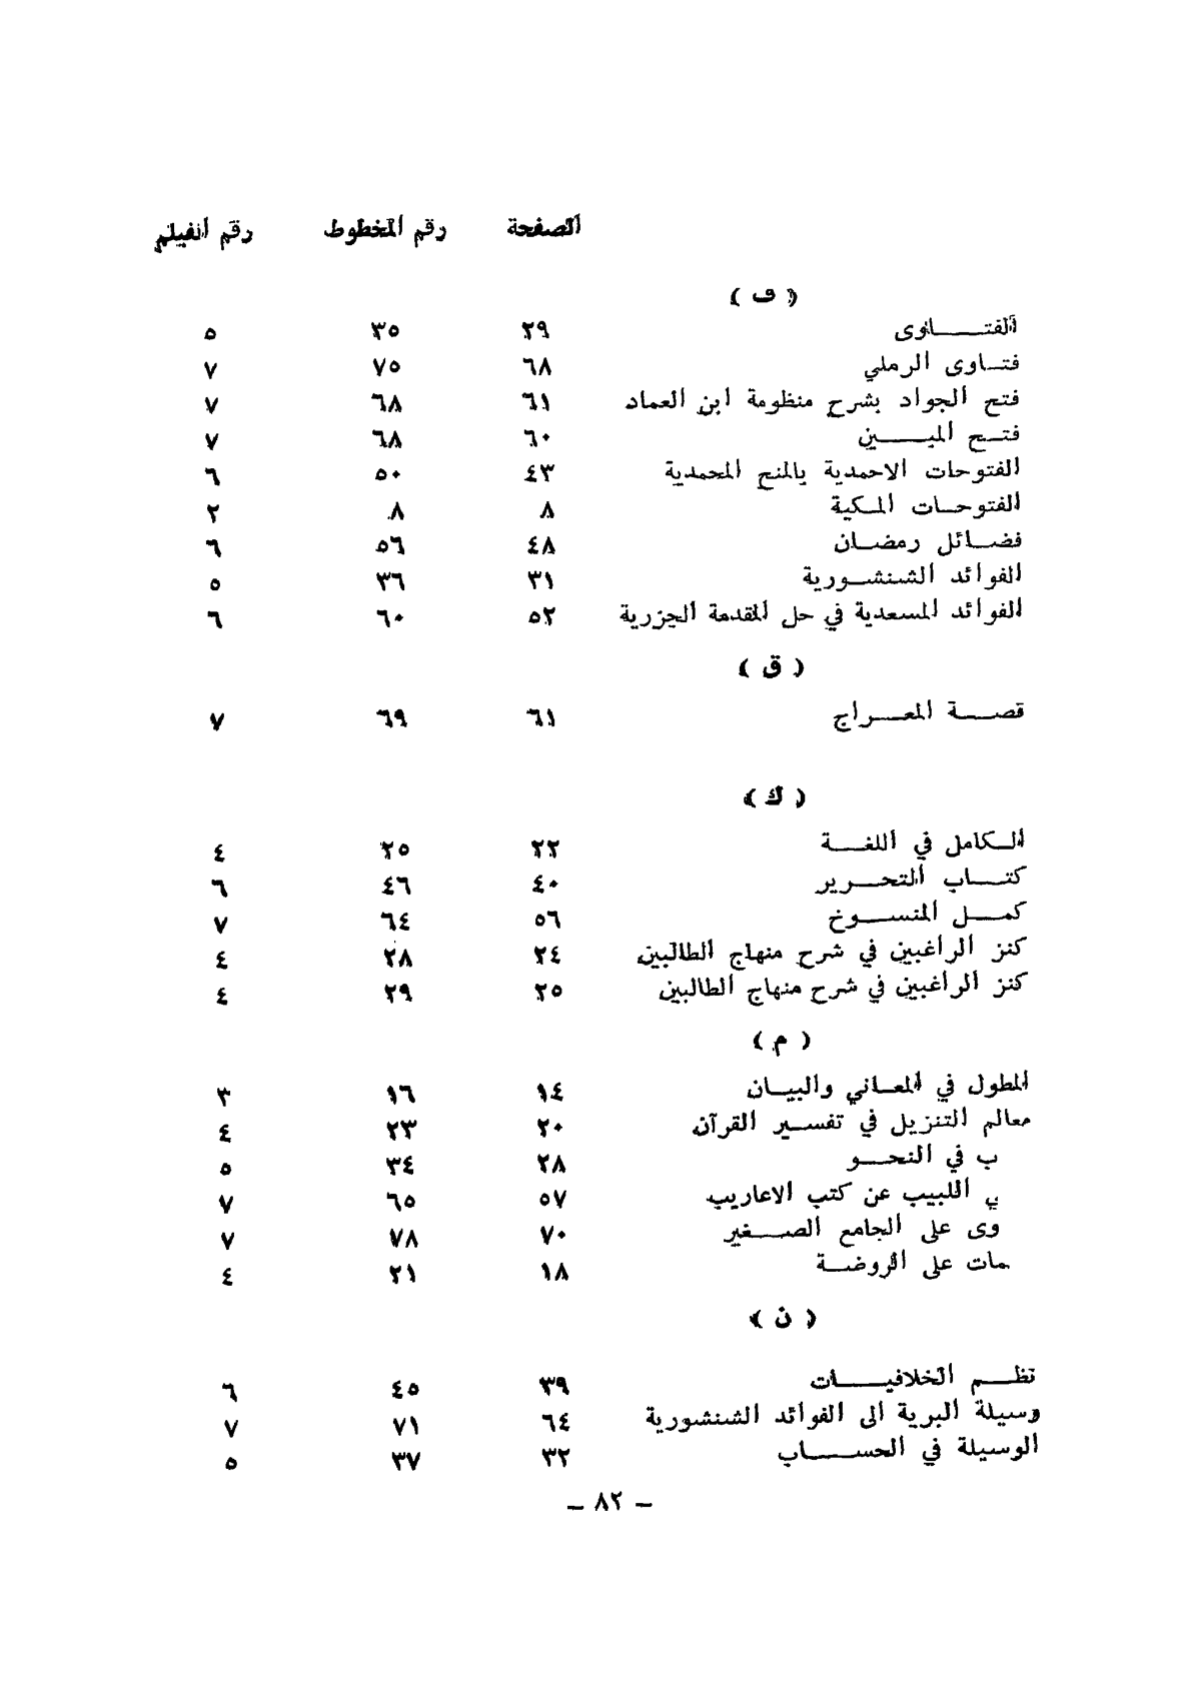 الصفحة رقم المخطوط رقم الفيلم
( ف )
الفتـــاوى ٢٩ ٣٥ ٥
فتـاوى الرملي ٦٨ ٧٥ ٧
فتح الجواد بشرح منظومة ابن العماد ٦١ ٦٨ ٧
فتـح المبـــين ٦٠ ٦٨ ٧
الفتوحات الاحمدية بالمنح المحمدية ٤٣ ٥٠ ٦
الفتوحـات المـكية ٨ ٨ ٢
فضـائل رمضـان ٤٨ ٥٦ ٦
الفوائد الشنشـورية ٣١ ٣٦ ٥
الفوائد المسعدية في حل المقدمة الجزرية ٥٢ ٦٠ ٦
( ق )
قصـــة المعـــراج ٦١ ٦٩ ٧
( ك )
الـكامل في اللغـــة ٢٢ ٢٥ ٤
كتـــاب التحـــرير ٤٠ ٤٦ ٦
كمـــل المنســـوخ ٥٦ ٦٤ ٧
كنز الراغبين في شرح منهاج الطالبين ٢٤ ٢٨ ٤
كنز الراغبين في شرح منهاج الطالبين ٢٥ ٢٩ ٤
( م )
المطول في المعـاني والبيـان ١٤ ١٦ ٣
معالم التنزيل في تفسـير القرآن ٢٠ ٢٣ ٤
ب في النحـــو ٢٨ ٣٤ ٥
ي اللبيب عن كتب الاعاريب ٥٧ ٦٥ ٧
وى على الجامع الصـــغير ٧٠ ٧٨ ٧
مات على الروضـــة ١٨ ٢١ ٤
( ن )
نظـــم الخلافيـــات ٣٩ ٤٥ ٦
وسيلة البرية الى الفوائد الشنشورية ٦٤ ٧١ ٧
الوسيلة في الحســـاب ٣٢ ٣٧ ٥
– ٨٢ –